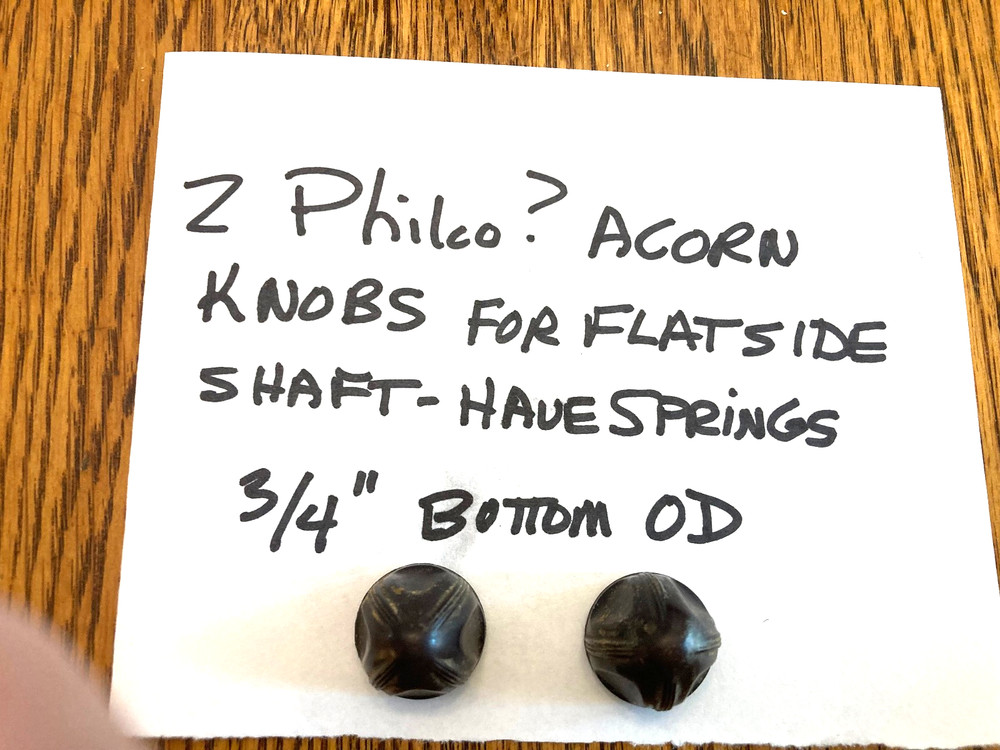 2 Philco? ACORN
KNOBS FOR FLATSIDE
SHAFT-HAVE SPRINGS
3/4" BOTTOM OD